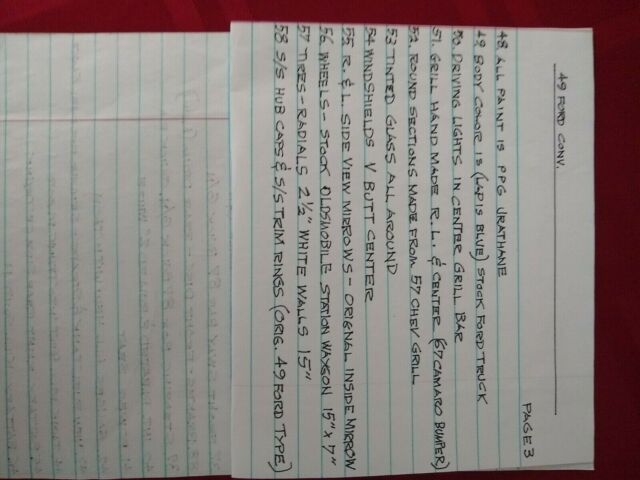 PAGE 3
49 FORD CONV.
48 ALL PAINT IS PPG URATHANE
49 BODY COLOR IS (LAPIS BLUE) STOCK FORD TRUCK
50 DRIVING LIGHTS IN CENTER GRILL BAR
51. GRILL HAND MADE R. L. & CENTER (67 CAMARO BUMPER)
52 ROUND SECTIONS MADE FROM 57 CHEV GRILL
53 TINTED GLASS ALL AROUND
54 WINDSHIELDS V BUTT CENTER
55 R. & L. SIDE VIEW MIRROWS - ORIGNAL INSIDE MIRROW
56 WHEELS - STOCK OLDSMOBILE STATION WAGON 15" X 7"
57 TIRES - RADIALS 2 1/2" WHITE WALLS 15"
58 S/S HUB CAPS & S/S TRIM RINGS (ORIG. 49 FORD TYPE)